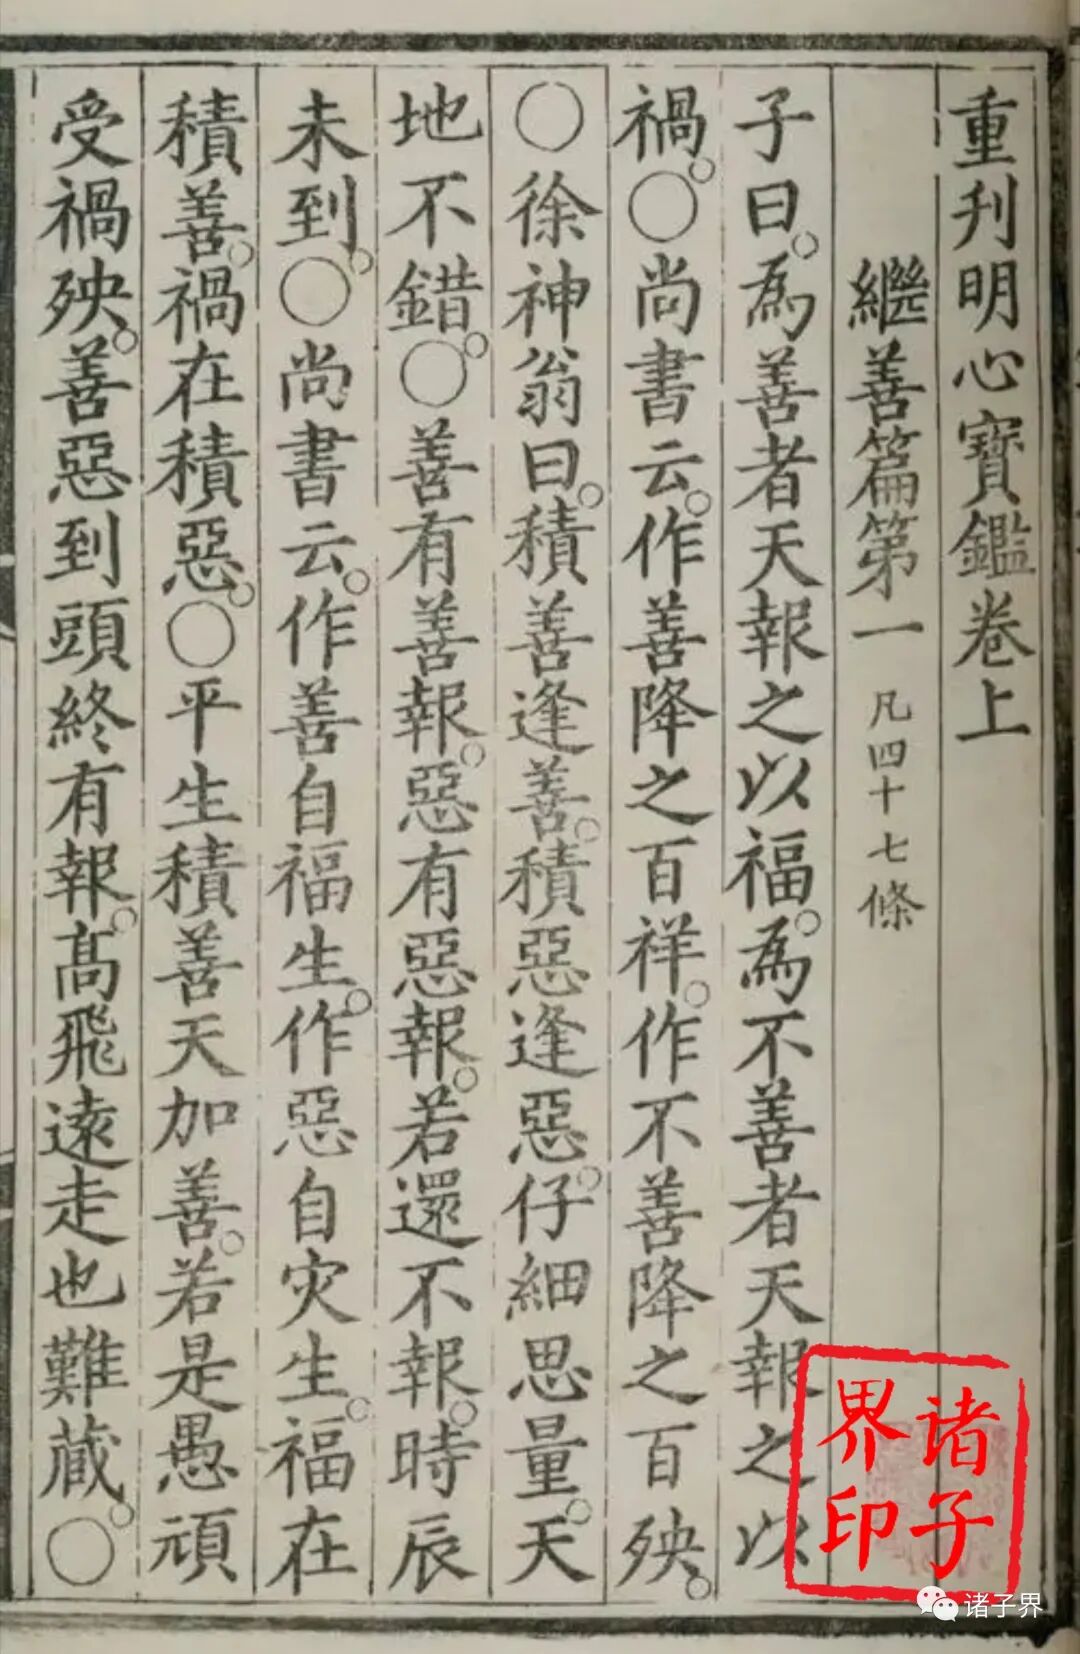 重刋明心寶鑑卷上
繼善篇第一 凡四十七條
子曰。爲善者天報之以福。爲不善者天報之以
禍。○尚書云。作善降之百祥。作不善降之百殃。
○徐神翁曰。積善逢善。積惡逢惡。仔細思量。天
地不錯。○善有善報。惡有惡報。若還不報。時辰
未到。○尚書云。作善自福生。作惡自灾生。福在
積善。禍在積惡。○平生積善天加善。若是愚頑
受禍殃。善惡到頭終有報。髙飛遠走也難藏。○
诸子界印
诸子界